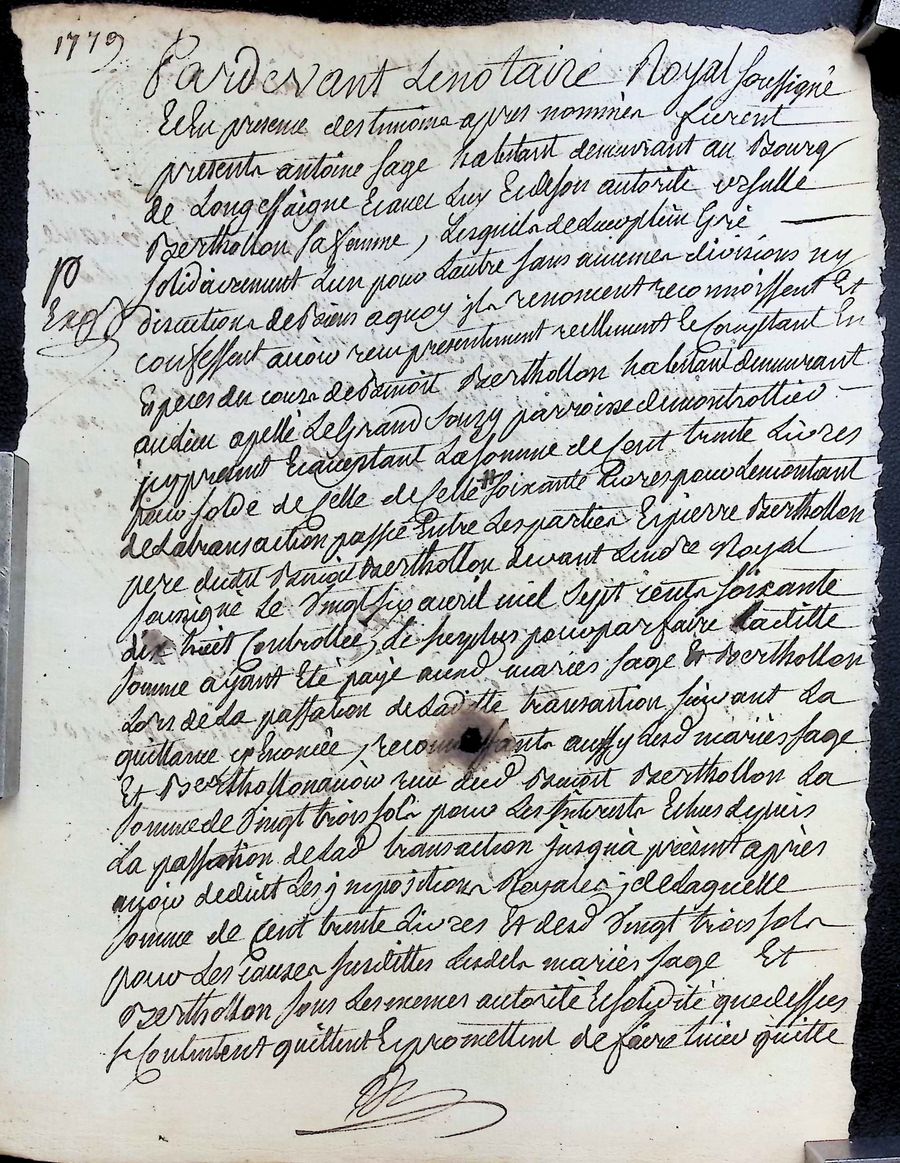 1779
Pardevant Lenotaire Royal soussigné
Et En presence des temoins apres nommés furent
presents antoine sage habitant demeurant au Bourg
de Longessaigne Et avec Luy Et de son autorité ursulle
Berthollon sa femme, Lesquels de Leur plein Gré
solidairement Lun pour Lautre sans aucunes divisions ny
p
Exp.
discutions de Biens aquoy ils renoncent reconnoissent Et
confessent avoir reçu presentement reellement Et Comptant En
Especes du cours de Benoit Berthollon habitant demeurant
audieu apellé Le Grand Souzy parroisse de montrottier
icy present Et acceptant La somme de Cent trente Livres
pour solde de Celle de Celle soixante Livres pour Le montant
de La transaction passée Entre Les parties Et pierre Berthollon
pere dudit Benoit Berthollon devant Le no.re Royal
soussigné Le Vingt six avril mil Sept cents soixante
dix huit Controllée, Le surplus pour parfaire Laditte
somme ayant Eté payé auxd mariés sage Et Berthollon
Lors de La passation de Laditte transaction suivant La
quittance y Enoncée, reconnoissants aussy Lesd mariés sage
Et Berthollon avoir reçu dud Benoit Berthollon La
somme de Vingt trois sols pour Les Interets Echus depuis
La passation de Lad transaction jusquà présent après
avoir deduit Les jmpositions Royales; de Laquelle
somme de Cent trente Livres Et desd Vingt trois sols
pour Les causes susdittes Lesdits mariés sage Et
Berthollon sous Les memes autorité Et solidité que dessus
se Contentent quittent Et promettent de faire tenir quitte